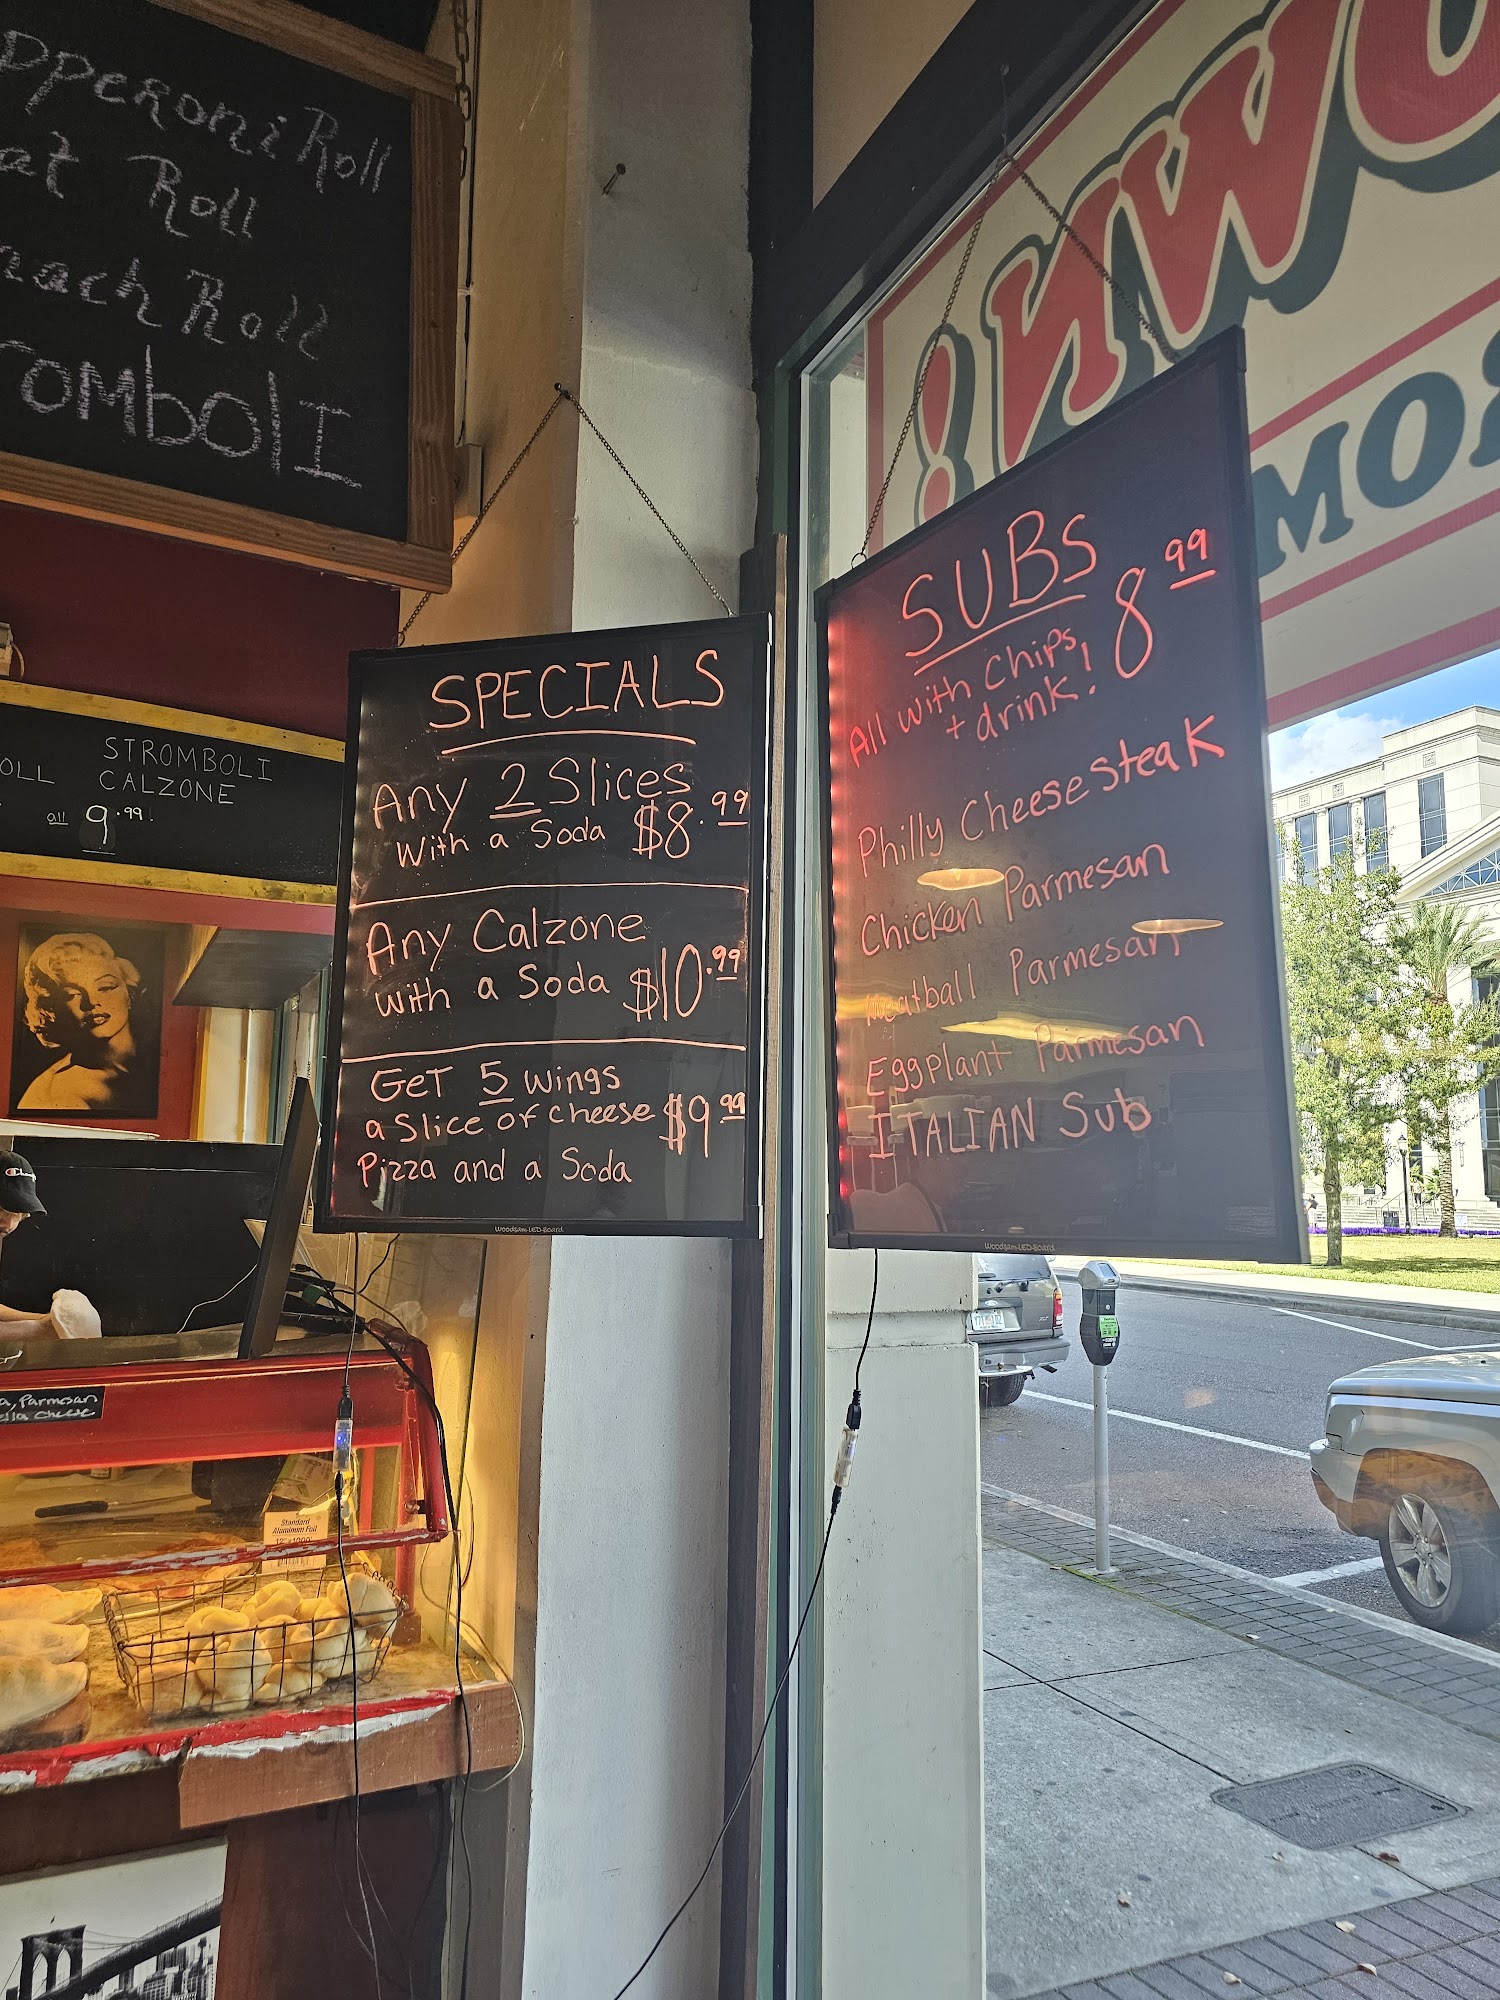 Roll
Roll
Roll
STROMBOLI
CALZONE
all 9.99!
SPECIALS
Any 2 Slices
With a Soda $8.99
Any Calzone
with a Soda $10.99
GeT 5 wings
a Slice of cheese $9.99
Pizza and a Soda
Woodsam-LED-Board
SUBs
All with Chips
+ drink! 8 99
Philly Cheesesteak
Chicken Parmesan
Meatball Parmesan
Eggplant Parmesan
ITALIAN Sub
Woodsam-LED-Board
Parmesan
cheese
Standard
Aluminum Foil